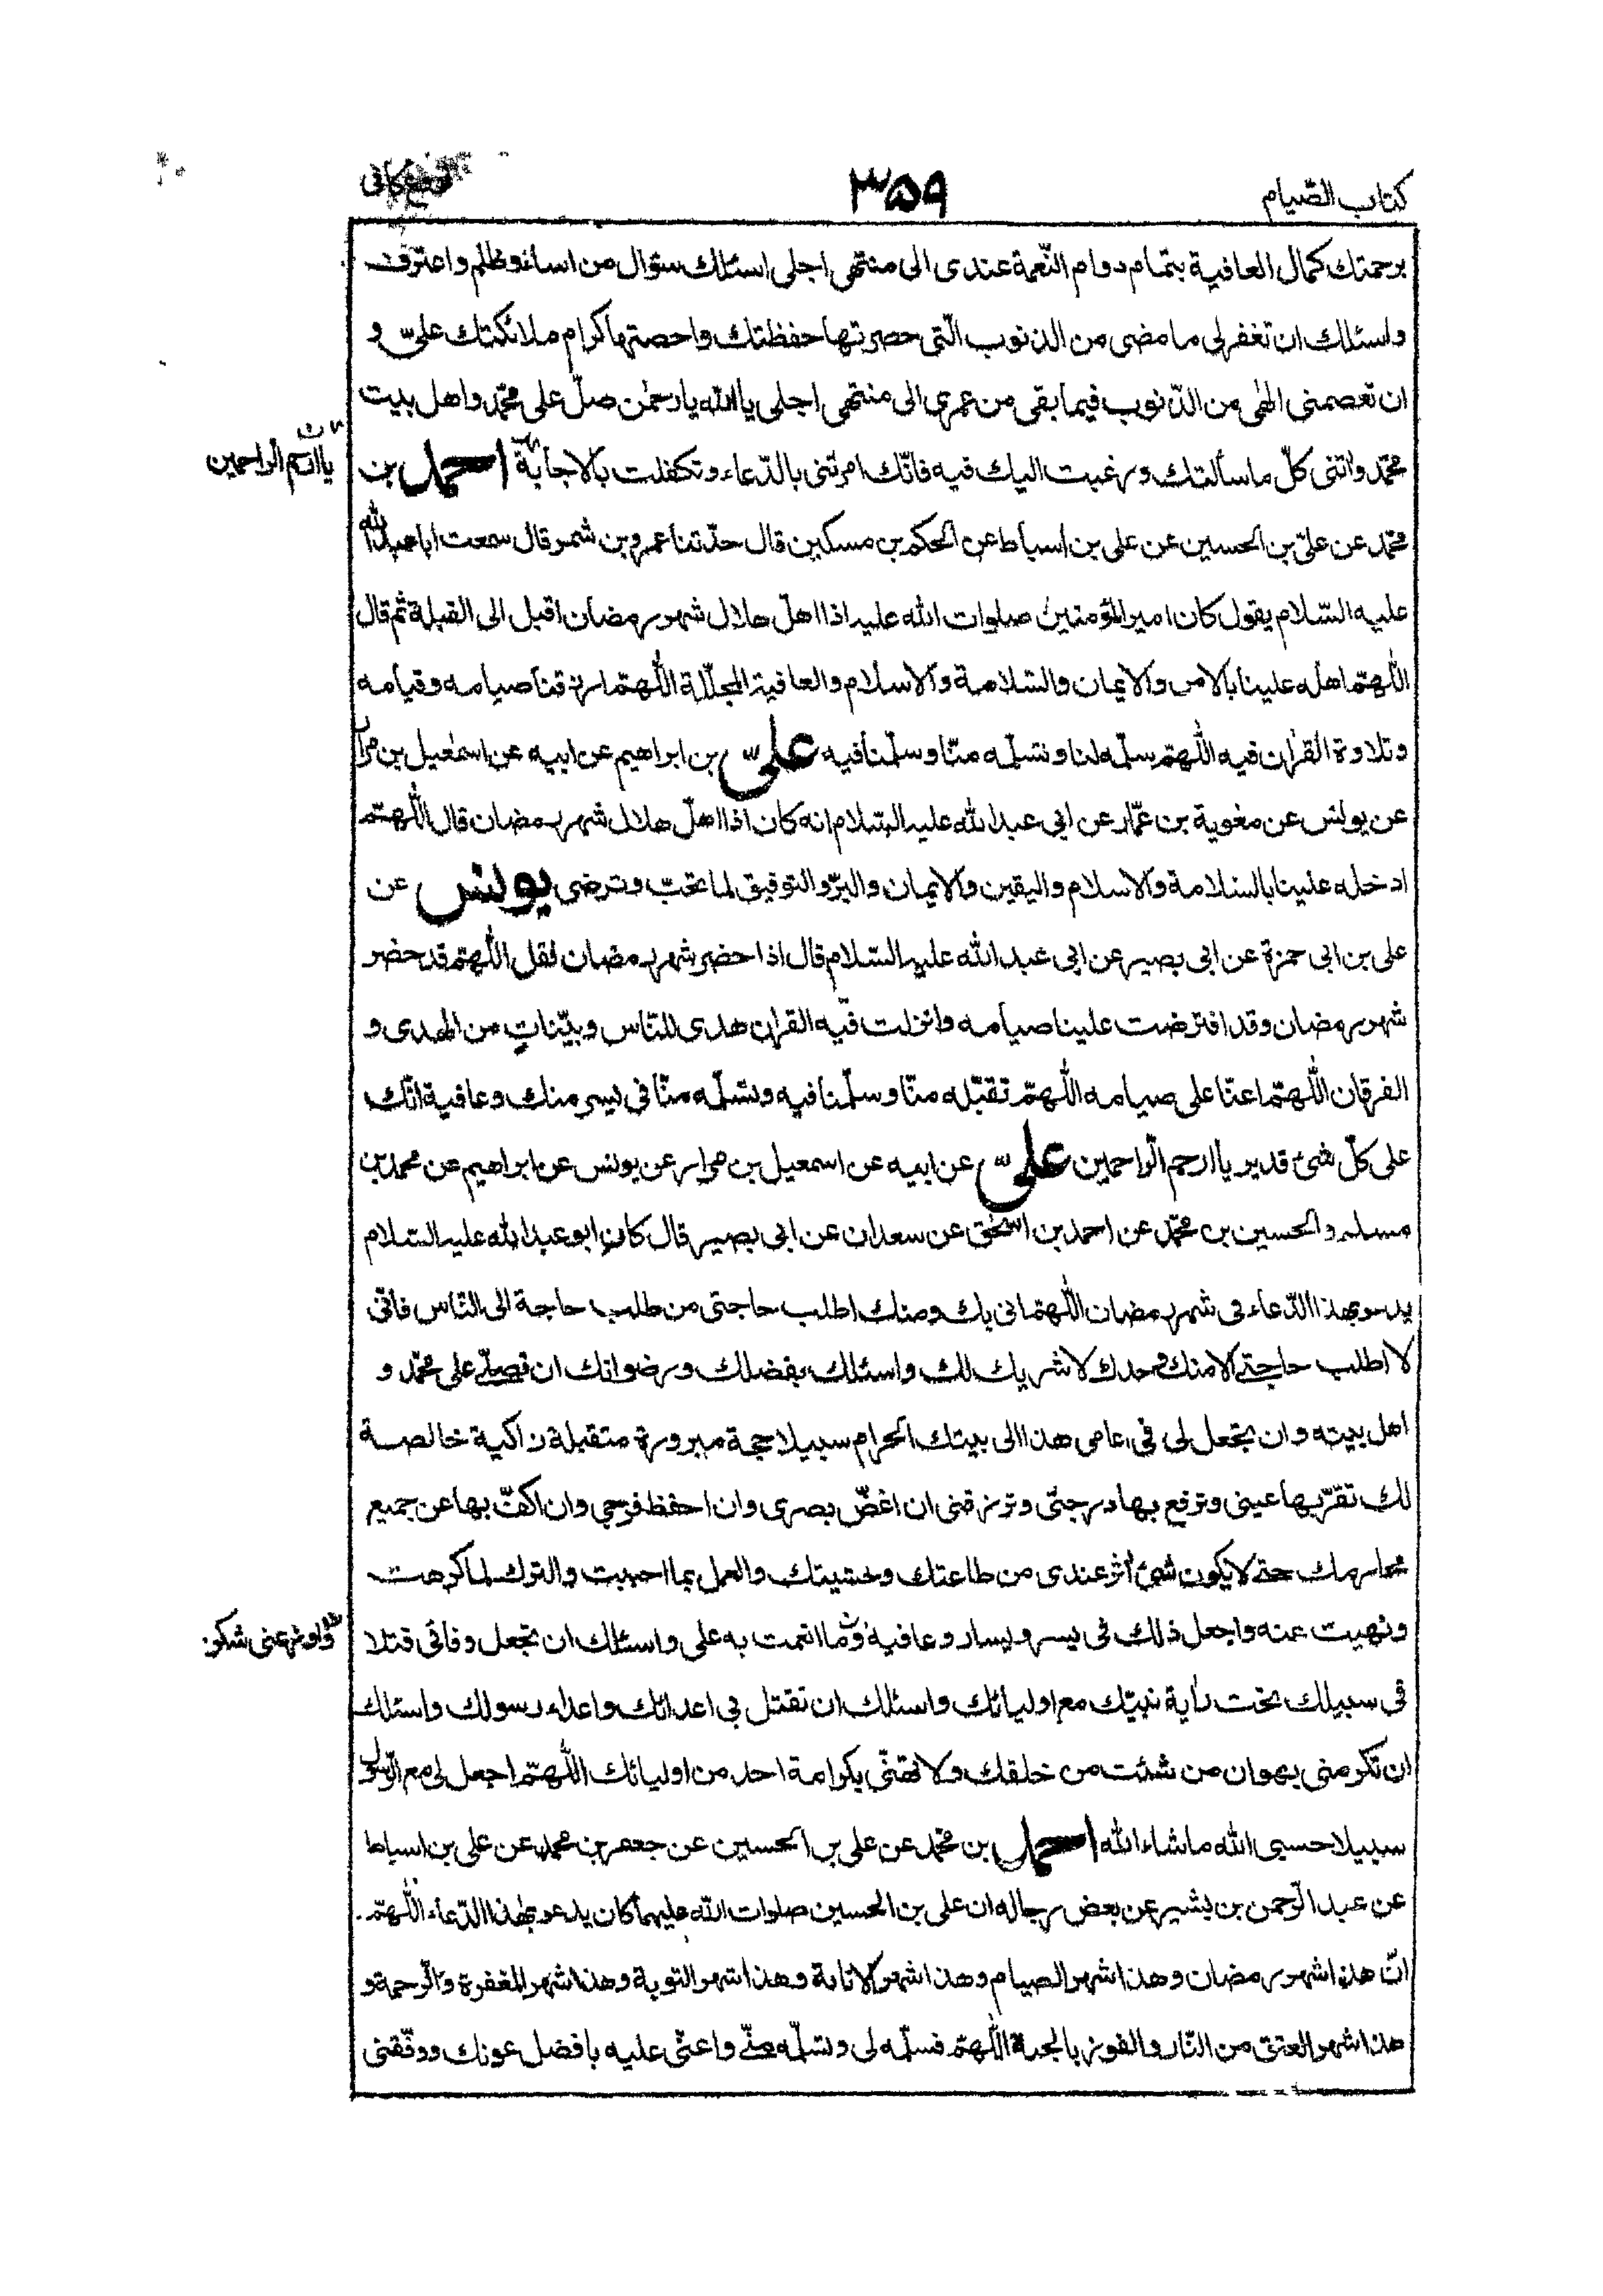 كتاب الصّيام
٣٥٩
فروع كافى
برحمتك كمال العافية بتمام دوام النّعمة عندى الى منتهى اجلى اسئلك سؤال من اساء وظلم واعترف
واسئلك ان تغفر لى ما مضى من الذنوب الّتى حصرتها حفظتك واحصتها كرام ملائكتك علىّ و
ان تعصمنى الهٰى من الذّنوب فيما بقى من عمرى الى منتهى اجلى يا الله يا رحمٰن صلّ على محمّد واهل بيت
محمّد واتنى كلّ ما سألتك ورغبت اليك فيه فانّك امرتنى بالدّعاء وتكفلت بالاجابة احمد بن
يا ارحم الراحمين
محمّد عن علىّ بن الحسين عن على بن اسباط عن الحكم بن مسكين قال حدّثنا عمرو بن شمر قال سمعت ابا عبد الله
عليه السّلام يقول كان امير المؤمنين صلوات الله عليه اذا اهلّ هلال شهر رمضان اقبل الى القبلة ثم قال
اللّهمّ اهله علينا بالامن والايمان والسّلامة والاسلام والعافية المجلّلة اللّهمّ ارزقنا صيامه وقيامه
وتلاوة القرٰان فيه اللّهمّ سلّمه لنا وتسلّمه منّا وسلّمنا فيه علىّ بن ابراهيم عن ابيه عن اسمٰعيل بن مرار
عن يونس عن معٰوية بن عمّار عن ابى عبد الله عليه السّلام انه كان اذا اهلّ هلال شهر رمضان قال اللّهمّ
ادخله علينا بالسّلامة والاسلام واليقين والايمان والبرّ والتوفيق لما تحبّ وترضى يونس عن
على بن ابى حمزة عن ابى بصير عن ابى عبد الله عليه السّلام قال اذا حضر شهر رمضان فقل اللّهمّ قد حضر
شهر رمضان وقد افترضت علينا صيامه وانزلت فيه القران هدى للنّاس وبيّناتٍ من الهدى و
الفرقان اللّهمّ اعنّا على صيامه اللّهمّ تقبّله منّا وسلّمنا فيه وتسلّمه منّا فى يسر منك وعافية انّك
على كلّ شئ قدير يا ارحم الرّاحمين علىّ عن ابيه عن اسمعيل بن مرار عن يونس عن ابراهيم عن محمد بن
مسلم والحسين بن محمّد عن احمد بن اسحٰق عن سعدان عن ابى بصير قال كان ابو عبد الله عليه السّلام
يدعو بهذا الدّعاء فى شهر رمضان اللّهمّ انى بك ومنك اطلب حاجتى من طلب حاجة الى النّاس فانّى
لا اطلب حاجتى الا منك وحدك لا شريك لك واسئلك بفضلك ورضوانك ان تصلّى على محمّد و
اهل بيته وان تجعل لى فى عامى هذا الى بيتك الحرام سبيلا حجة مبرورة متقبلة زاكية خالصة
لك تقرّ بها عينى وترفع بها درجتى وترزقنى ان اغضّ بصرى وان احفظ فرجى وان اكفّ بها عن جميع
محارمك حتى لا يكون شئ اثر عندى من طاعتك وخشيتك والعمل بما احببت والترك لما كرهت
ونهيت عنه واجعل ذلك فى يسر ويسار وعافية وما انعمت به على واسئلك ان تجعل وفاتى قتلا
واوزعنى شكر
فى سبيلك تحت راية نبيّك مع اوليائك واسئلك ان تقتل بى اعدائك واعداء رسولك واسئلك
ان تكرمنى بهوان من شئت من خلقك ولا تهنّى بكرامة احد من اوليائك اللّهمّ اجعل لى مع الرّسول
سبيلا حسبى الله ما شاء الله احمد بن محمّد عن على بن الحسين عن جعفر بن محمد عن على بن اسباط
عن عبد الرّحمن بن بشير عن بعض رجاله ان على بن الحسين صلوات الله عليهما كان يدعو بهٰذا الدّعاء اللّهمّ
انّ هذا شهر رمضان وهذا شهر الصيام وهذا شهر الانابة وهذا شهر التوبة وهذا شهر المغفرة والرّحمة و
هذا شهر العتق من النّار والفوز بالجنة اللّهمّ فسلّمه لى وتسلّمه منّى واعنّى عليه بافضل عونك ووفّقنى